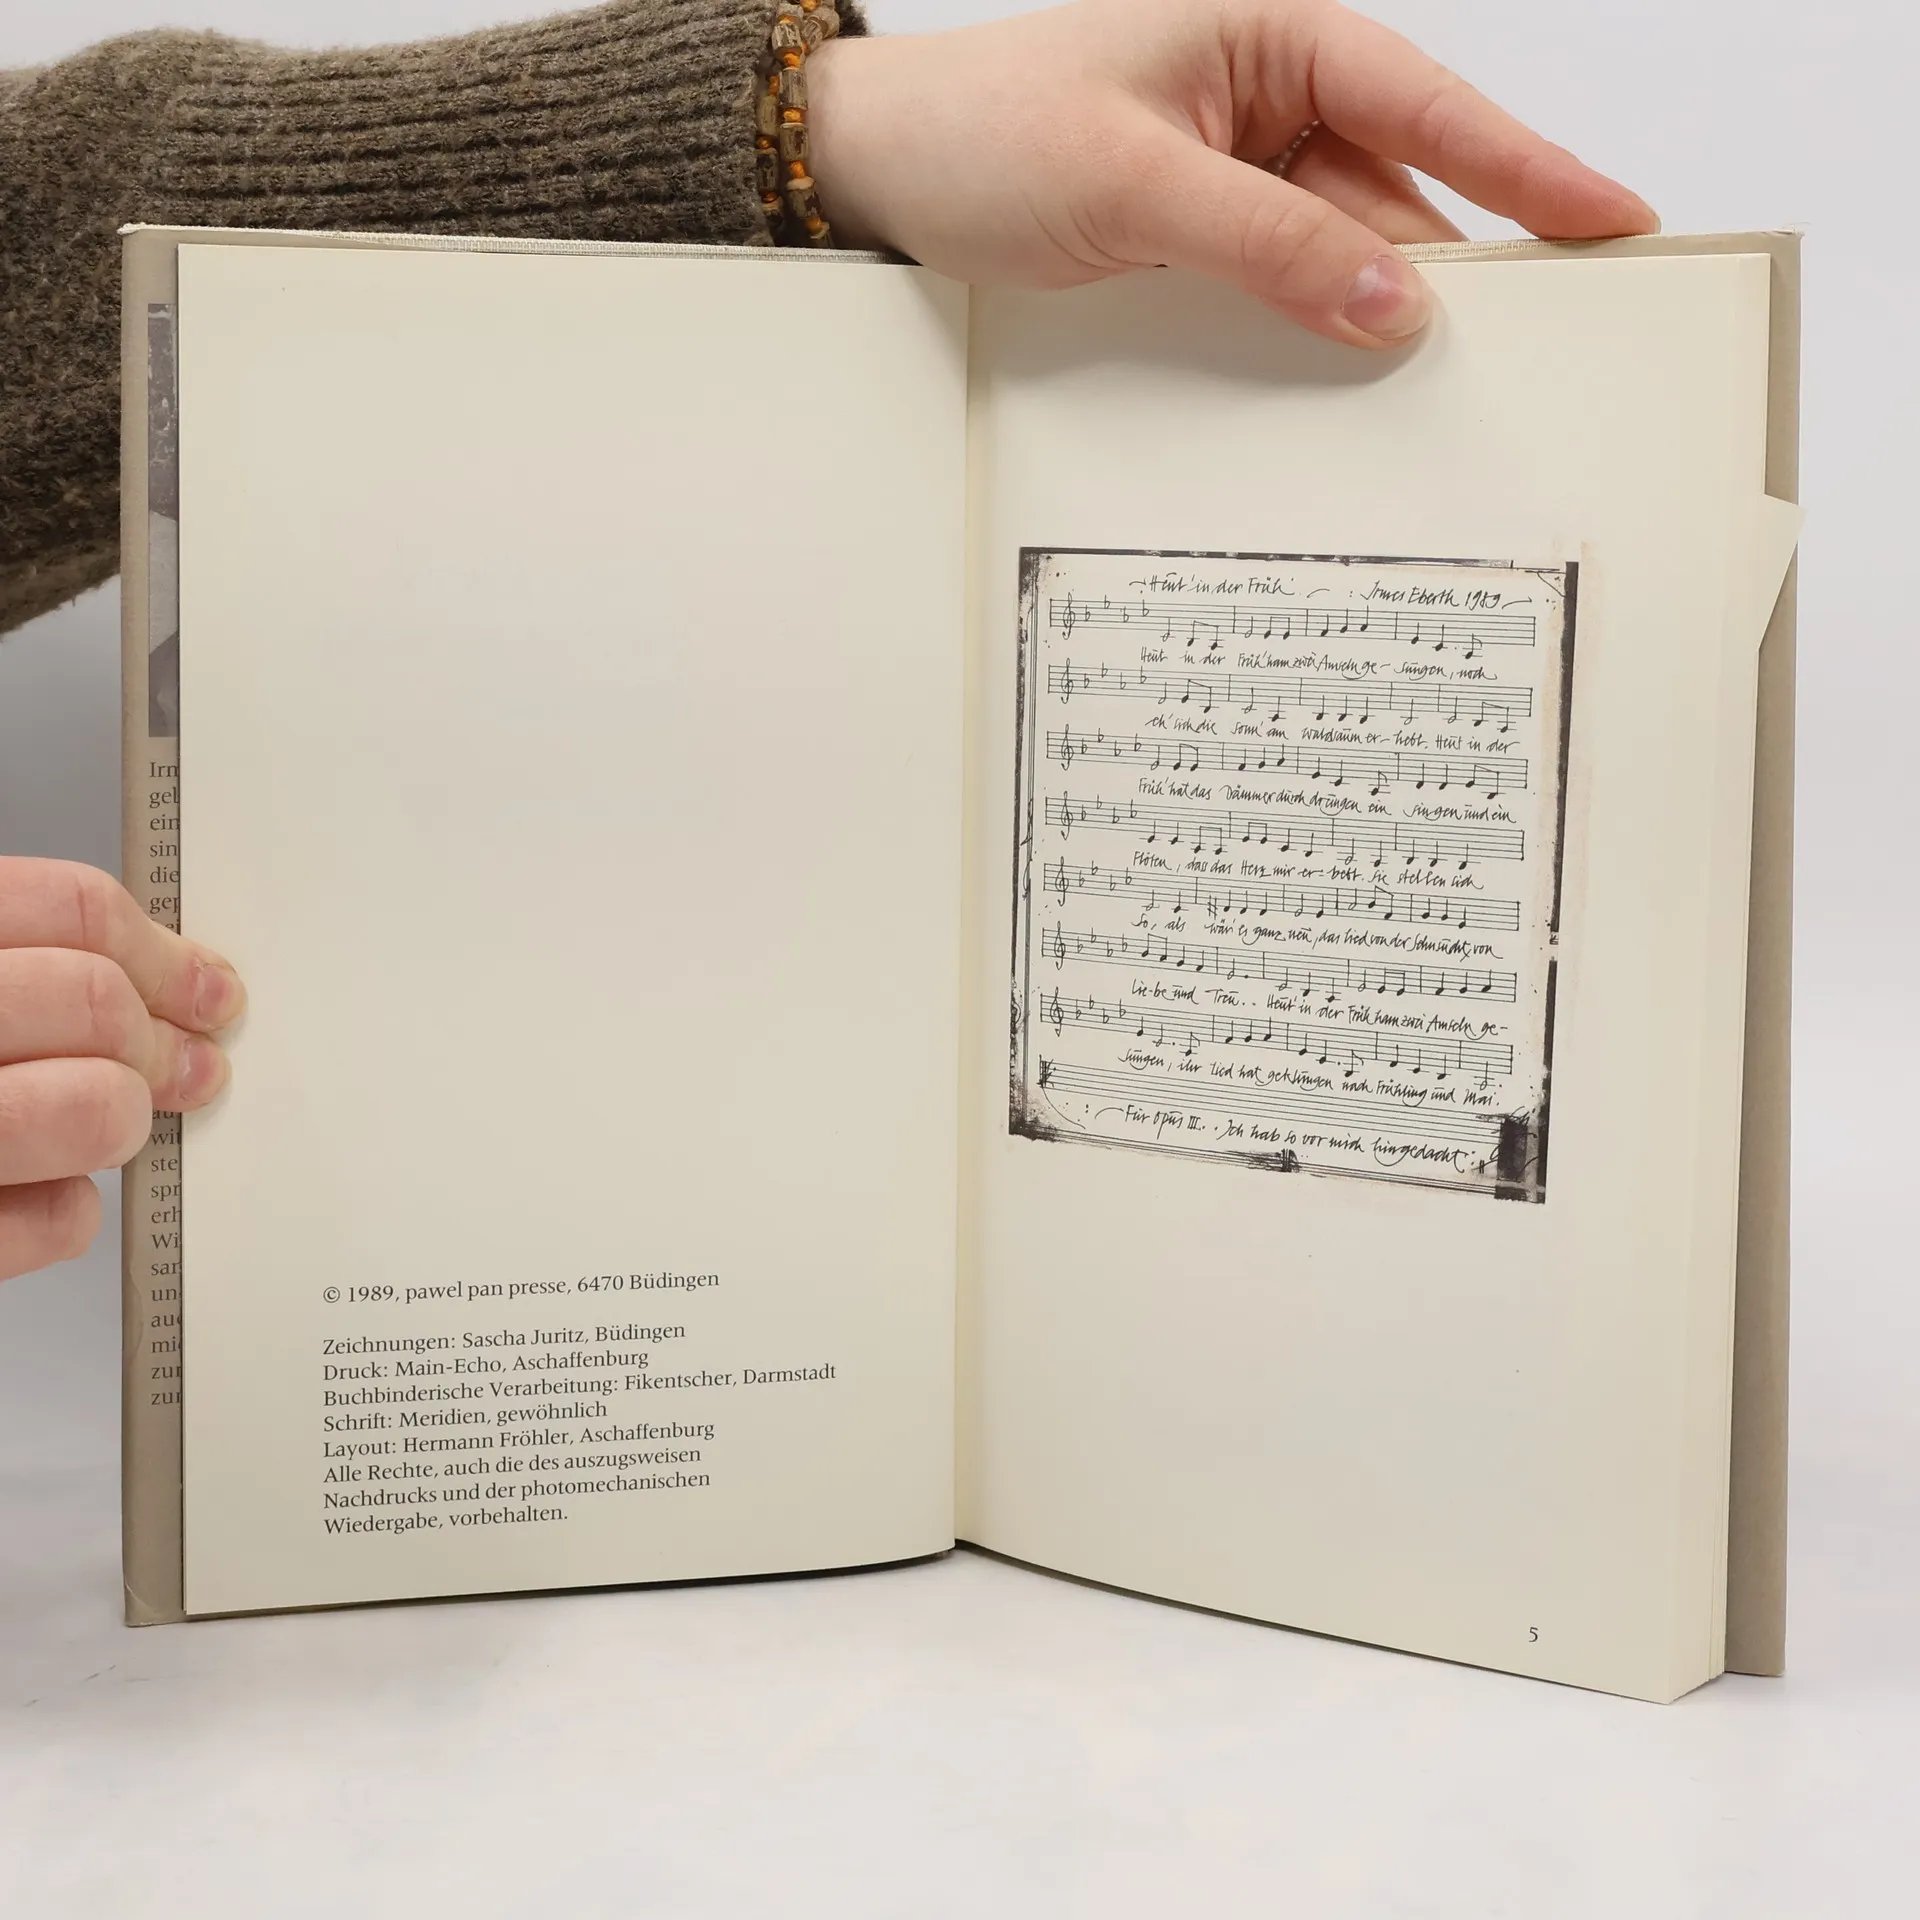 Irm
gel
ein
sin
die
gep
au
wit
ste
spr
erh
Wi
sar
un
auc
mi
zur
zur
© 1989, pawel pan presse, 6470 Büdingen
Zeichnungen: Sascha Juritz, Büdingen
Druck: Main-Echo, Aschaffenburg
Buchbinderische Verarbeitung: Fikentscher, Darmstadt
Schrift: Meridien, gewöhnlich
Layout: Hermann Fröhler, Aschaffenburg
Alle Rechte, auch die des auszugsweisen
Nachdrucks und der photomechanischen
Wiedergabe, vorbehalten.
Heut' in der Früh' : Irmes Eberth 1989
Heut in der Früh' ham zwei Amseln ge- sungen, noch
eh' sich die Sonn' am Waldsaum er- hebt. Heut in der
Früh' hat das Dämmer durchdrungen ein Singen und ein
Flöten, dass das Herz mir er- bebt. Sie stellen sich
so, als wär' es ganz neu, das Lied von der Sehnsucht, von
Lie-be und Treu.. Heut' in der Früh ham zwei Amseln ge-
sungen, ihr Lied hat geklungen nach Frühling und Mai.
: Für Opus III.. Ich hab so vor mich hingedacht :
5